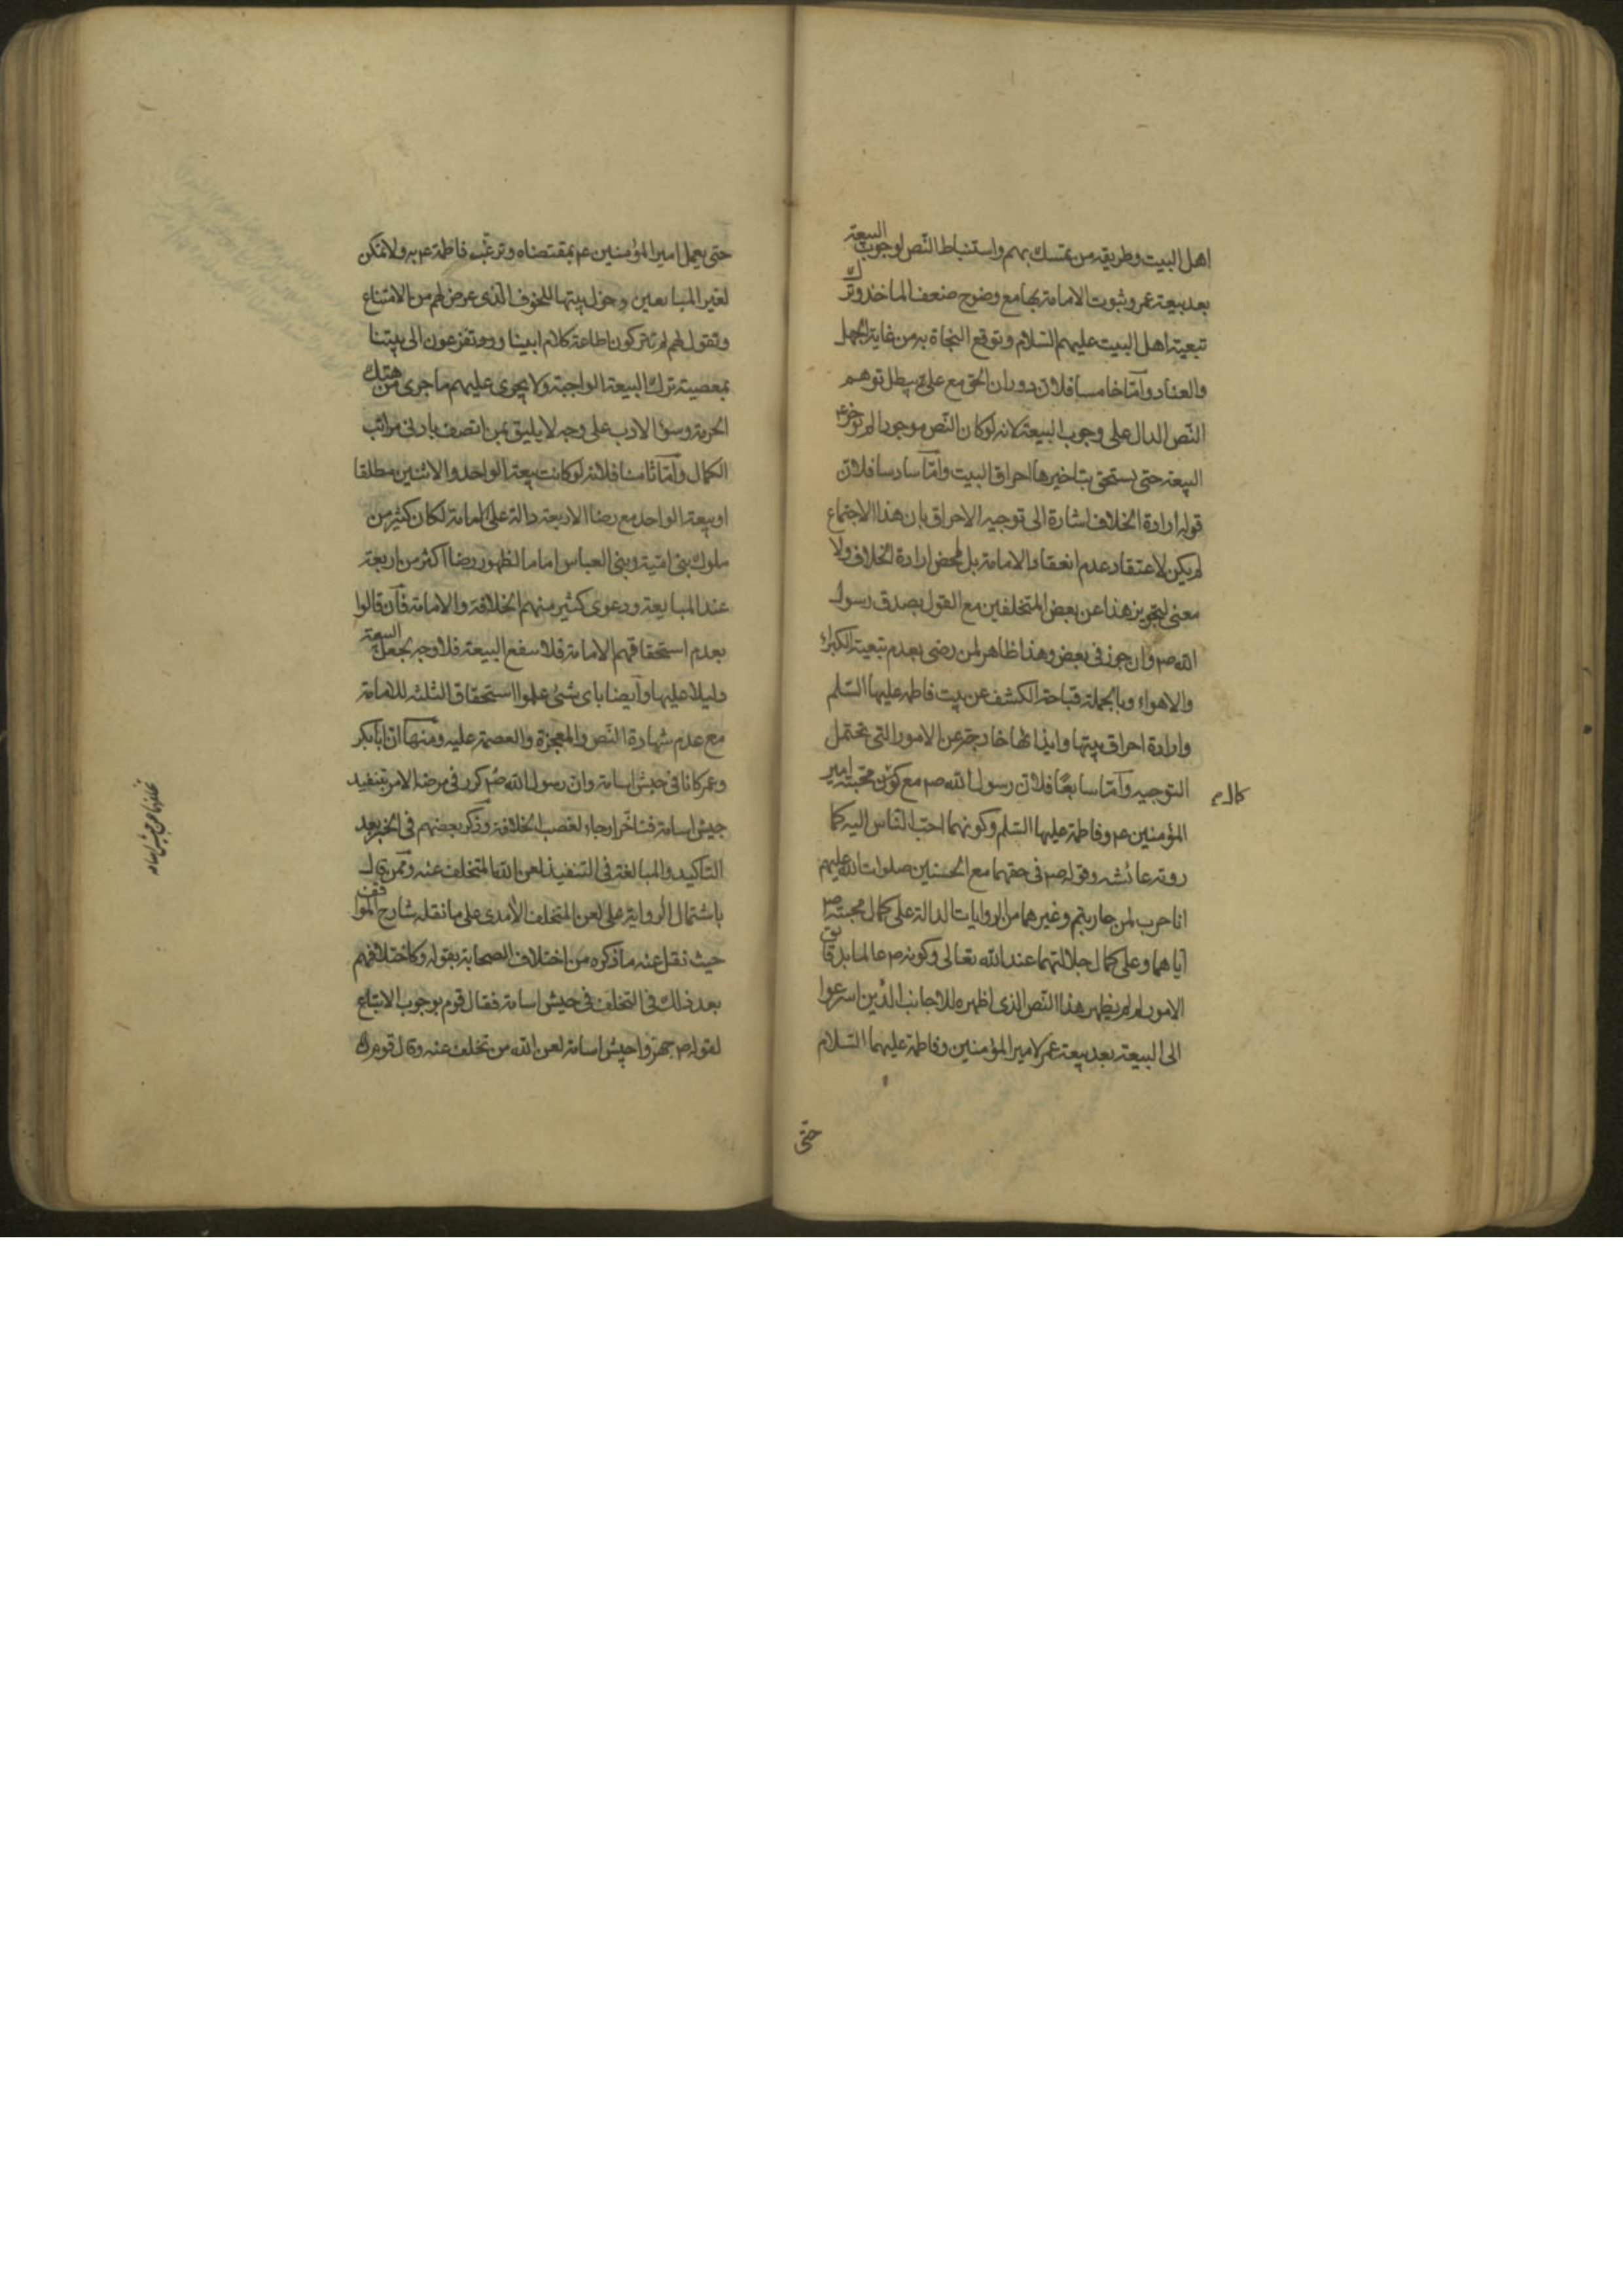 اهل البيت وطريقه من تمسك بهم واستنباط النّص لوجوب البيعة
بعد بيعة عمر وثبوت الامامة بها مع وضوح ضعف الماخذ وترك
تبعية اهل البيت عليهم السّلام وتوقع النجاة به من غاية الجهل
والعناد وامّا خامسا فلان دوران الحق مع علىّ يبطل توهم
النّص الدال على وجوب البيعة لانه لو كان النّص موجودا لم يؤخر عم
البيعة حتى يستحق بتاخيرها احراق البيت وامّا سادسا فلانّ
قوله ارادة الخلاف اشارة الى توجيه الاحراق بان هذا الاجتماع
لم يكن لاعتقاد عدم انعقاد الامامة بل لمحض ارادة الخلاف ولا
معنى لتجويز هذا عن بعض المتخلفين مع القول بصدق رسول
الله ص وان جوز فى بعض وهذا ظاهر لمن رضى بعدم تبعية الكبراء
والاهواء وبالجملة قباحة الكشف عن بيت فاطمة عليها السّلم
وارادة احراق بيتها وايذائها خارجة عن الامور التى تحتمل
التوجيه وامّا سابعًا فلان رسول الله ص مع كمال محبته امير
المؤمنين ع وفاطمة عليها السّلم وكونهما احبّ النّاس اليه كما
روته عائشه وقوله ص فى حقهما مع الحسنين صلوات الله عليهم
انا حرب لمن حاربتم وغيرهما من الروايات الدالة على كمال محبته ص
ايّاهما وعلى كمال جلالتهما عند الله تعالى وكونه ص عالما بدقايق
الامور لم لم يظهر هذا النّص الذى اظهره للاجانب الذين اسرعوا
الى البيعة بعد بيعة عمر لامير المؤمنين وفاطمة عليهما السّلام
حتى
حتى يعمل امير المؤمنين ع بمقتضاه وترغّب فاطمة ع به ولا تمكن
لغير المبايعين دخول بيتها للخوف الّذى عرض لهم من الامتناع
وتقول لهم لم تتركون اطاعة كلام ابينا وتفزعون الى بيتنا
بمعصية ترك البيعة الواجبة ولا يجرى عليهم ما جرى من هتك
الحرمة وسوء الادب على وجه لا يليق بمن اتصف بادنى مراتب
الكمال وامّا ثامنا فلانّه لو كانت بيعة الواحد والاثنين مطلقا
او بيعة الواحد مع رضا الاربعة دالة على امامة لكان كثير من
ملوك بنى امّية وبنى العباس اماما لظهور رضا اكثر من اربعة
عند المبايعة ودعوى كثير منهم الخلافة والامامة فان قالوا
بعدم استحقاقهم الامامة فلا ينفع البيعة فلا وجه لجعل البيعة
دليلا عليها وايضا باى شئ علموا استحقاق الثلثه للامامة
مع عدم شهادة النّص والمعجزة والعصمة عليه ومنها انّ ابابكر
وعمر كانا فى جيش اسامة وان رسول الله ص كرر فى مرضه الامر بتنفيذ
جيش اسامة فتاخّرا رجاء لغصب الخلافة وذكر بعضهم فى الخبر بعد
التاكيد والمبالغة فى التنفيذ لعن الله المتخلف عنه وممن قال
باشتمال الرواية على لعن المتخلف الآمدى على ما نقله شارح المواقف
حيث نقل عنه ما ذكره من اختلاف الصحابة بقوله وكاختلافهم
بعد ذلك فى التخلف فى جيش اسامة فقال قوم بوجوب الاتباع
لقوله ص جهزوا جيش اسامة لعن الله من تخلف عنه وقال قوم